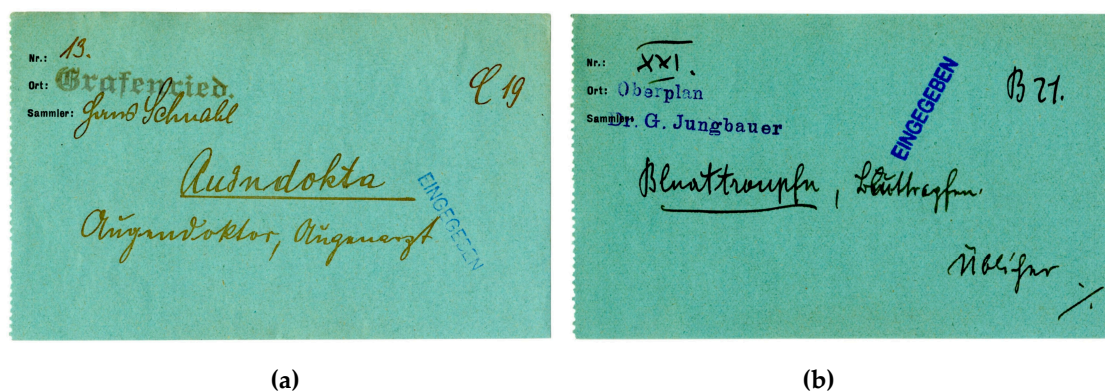 Nr.: 13.
Ort: Grafenried.
Sammler: Hans Schnabl
C 19
Ausndokta
EINGEGEBEN
Augendoktor, Augenarzt
(a)
Nr.: XXI.
Ort: Oberplan
Sammler: Dr. G. Jungbauer
EINGEGEBEN
B 21.
Bluattroupfn, Bluttropfen.
Üblicher
(b)